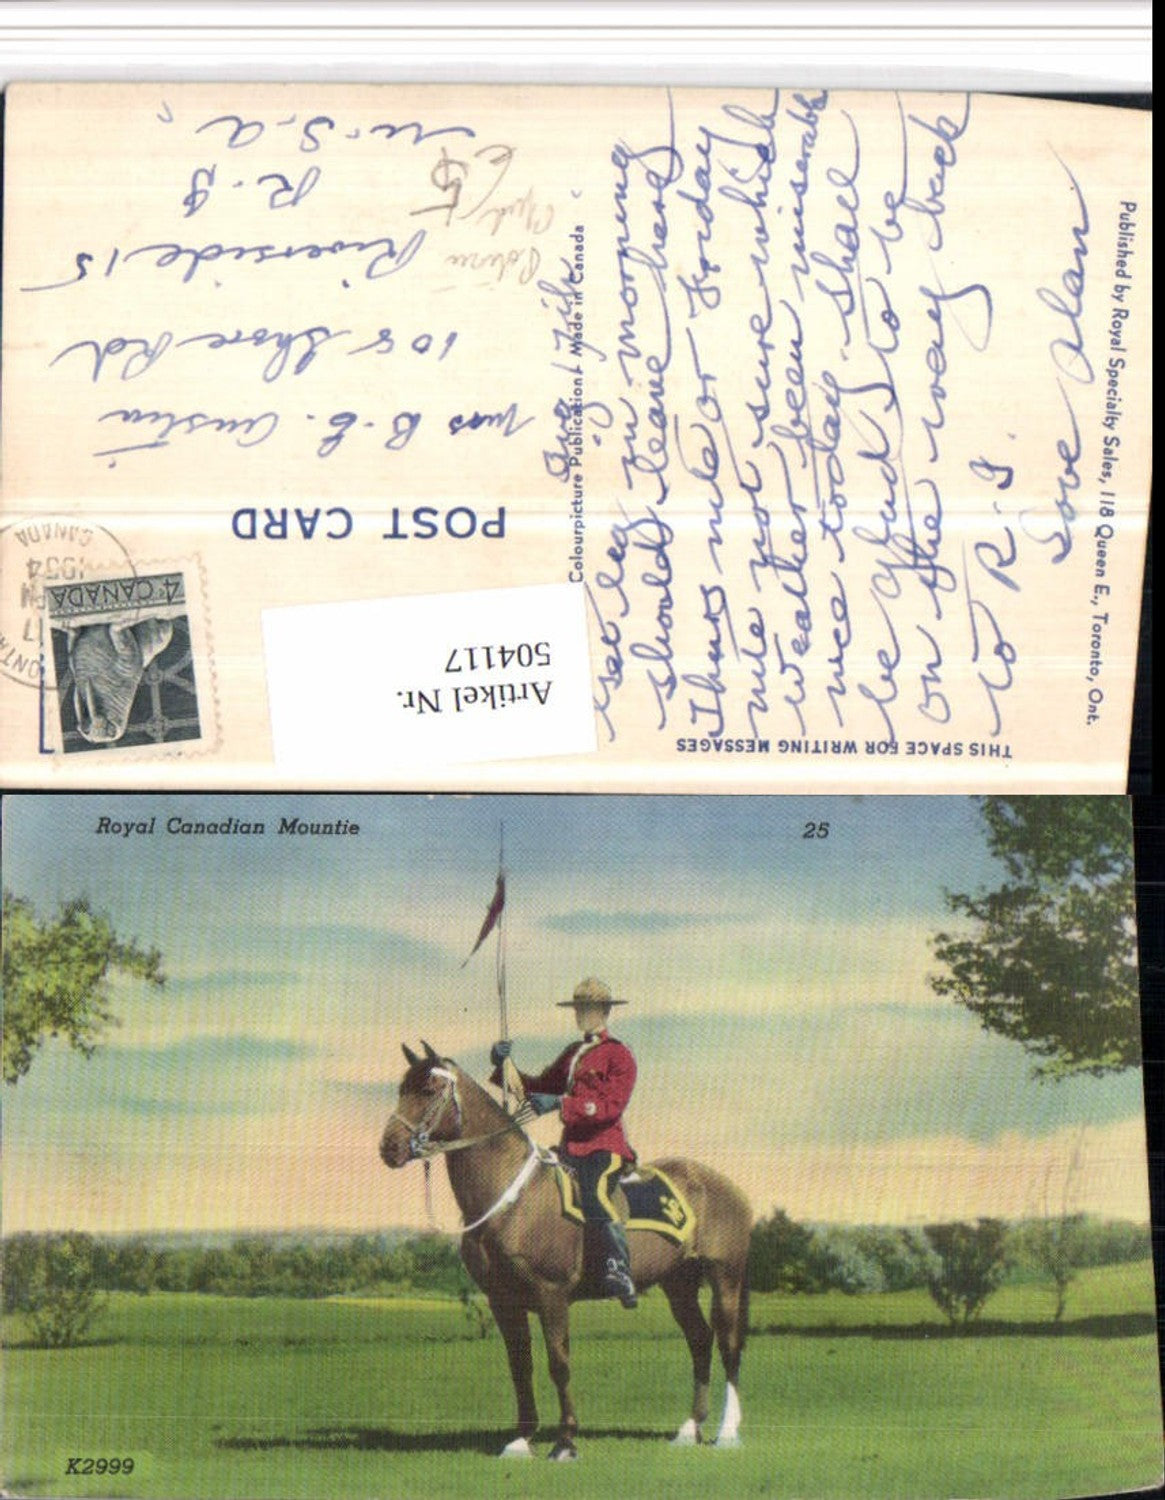 THIS SPACE FOR WRITING MESSAGES
on morning
should leave here
Thurs nite or Friday
nite not sure which
weather been miserable
nice today. Shall
be glad to be
on the way back
to R.I.
Love Alan
Published by Royal Specialty Sales, 118 Queen E., Toronto, Ont.
Colourpicture Publication Made in Canada
POST CARD
CANADA
1954
PM
17
ONTA
4¢ CANADA
Artikel Nr.
504117
Miss B. E. Austin
108 Shore Rd
Riverside 15
R. I
U.S.A.
Royal Canadian Mountie
25
K2999